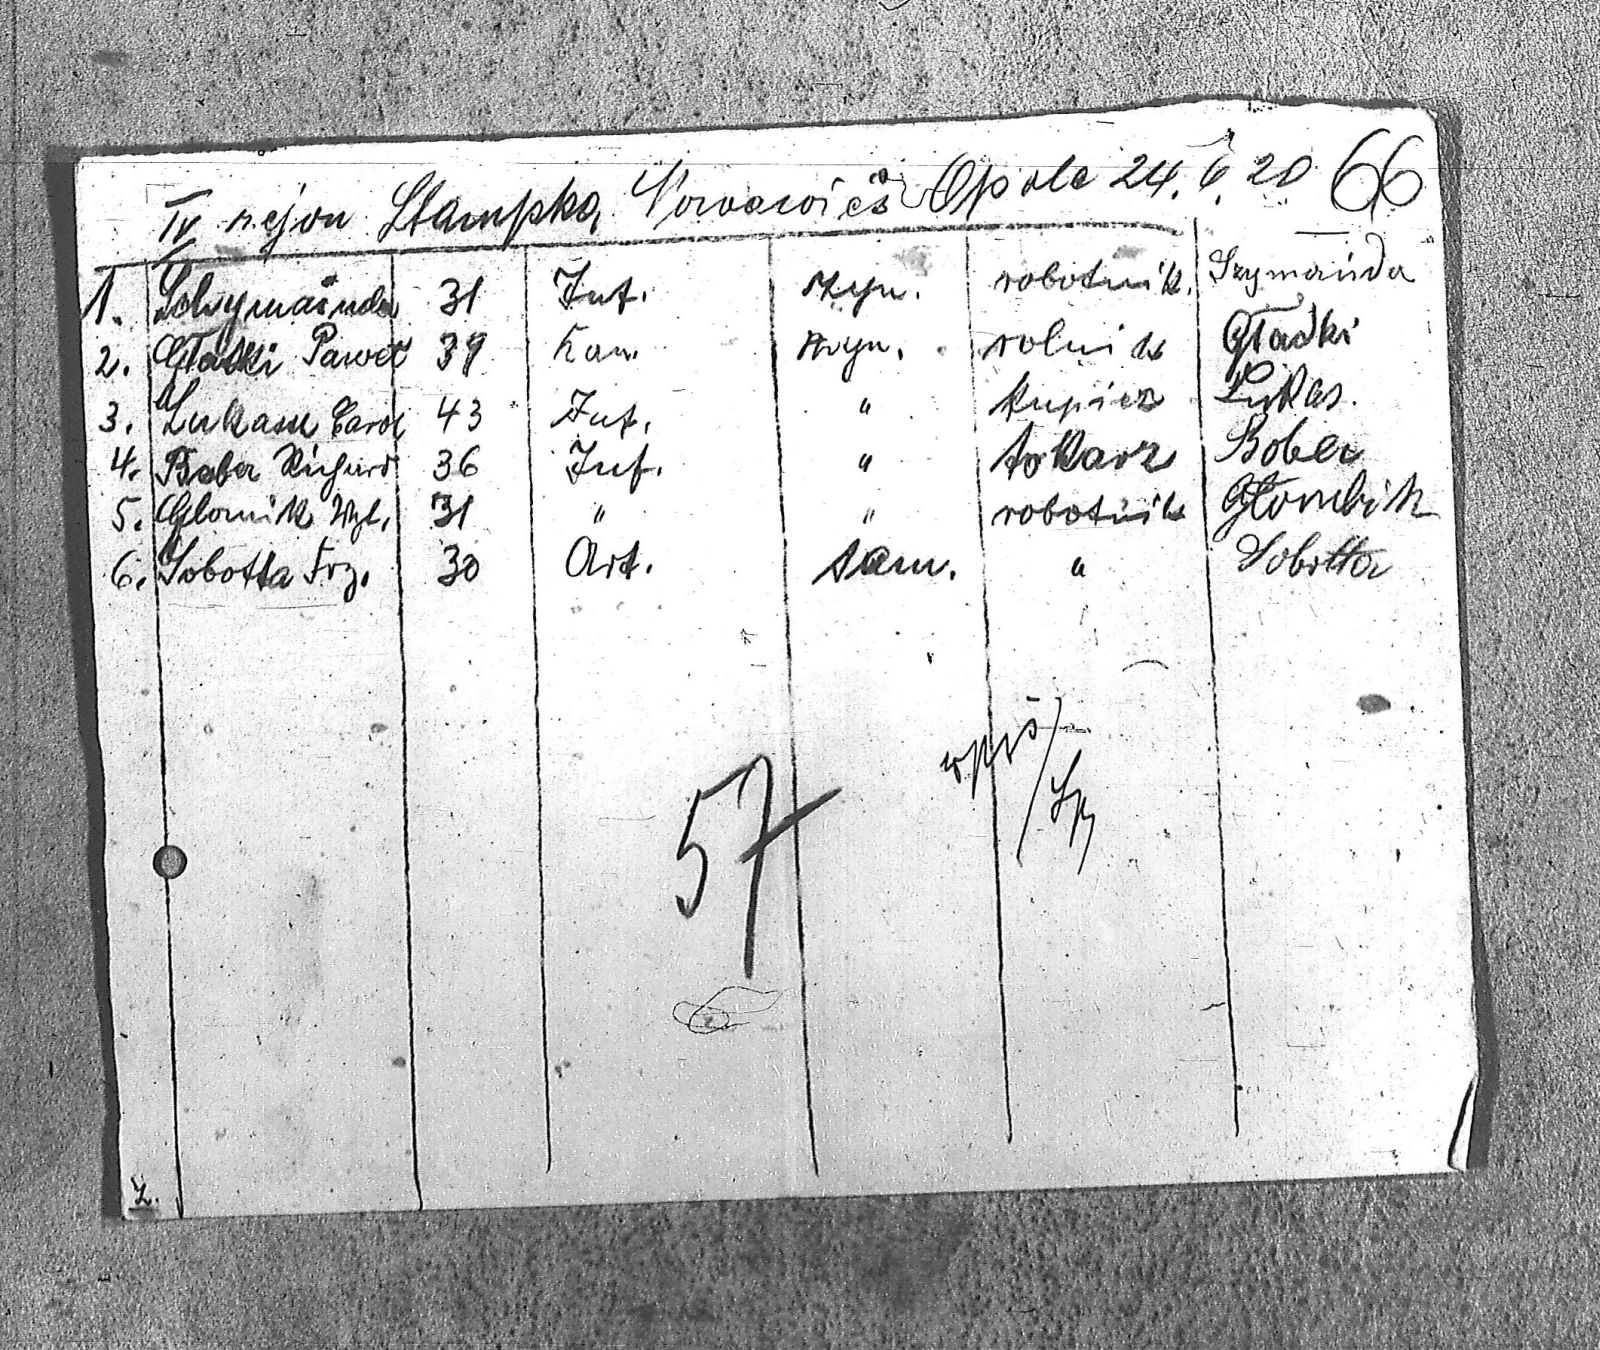 IV rejon Stampka, Nowawieś Opole 24. V 20 66
1. Schymainda 31 Inf. szyn. robotnik. Szymainda
2. Gładki Paweł 39 Kan. szyn. rolnik Gładki
3. Lukasz Carol 43 Inf. " kupiec Lukas.
4. Bober Richard 36 Inf. " tokarz Bober
5. Glomik Wyl. 31 " " robotnik Głombik
6. Sobotta Frz. 30 Art. sam. " Sobotta
wpis/
57